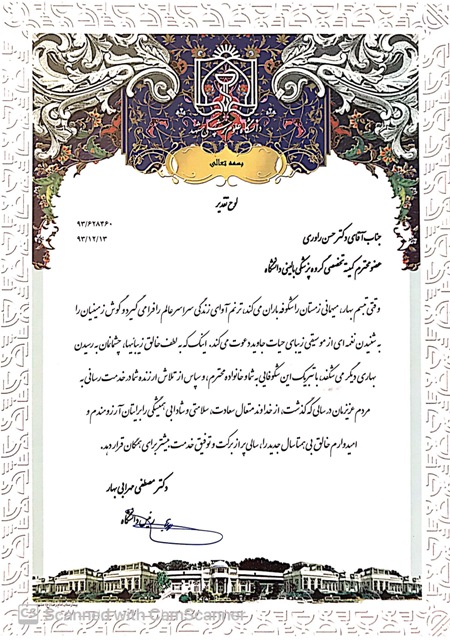 بسمه تعالی
لوح تقدیر
۹۳/۶۲۸۴۶۰
۹۳/۱۲/۱۳
جناب آقای دکتر حسن راوری
عضو محترم کمیته تخصصی گروه پزشکی بالینی دانشگاه
وقتی تبسم بهار، میهمانی زمستان را شکوفه باران می کند، ترنم آوای زندگی سراسر عالم را فرا می گیرد و گوش زمینیان را
به شنیدن نغمه ای از موسیقی زیبای حیات جاوید دعوت می کند. اینک که به لطف خالق زیبائیها، چشمانمان به رسیدن
بهاری دیگر می شکفد، با تبریک این شکوفایی به شما و خانواده محترم، و سپاس از تلاش ارزنده شما در خدمت رسانی به
مردم عزیزمان در سالی که گذشت، از خداوند متعال سعادت، سلامتی و شادابی همیشگی را برایتان آرزومندم و
امیدوارم خالق بی همتا سال جدید را، سالی پر از برکت و توفیق خدمت بیشتر برای همگان قرار دهد.
دکتر مصطفی مهرابی بهار
رئیس دانشگاه
CS Scanned with CamScanner